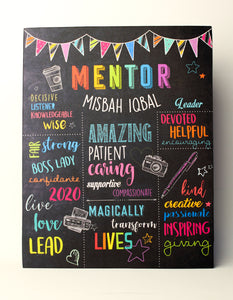 MENTOR
MISBAH IQBAL
DECISIVE
LISTENER
KNOWLEDGEABLE
wise
FAIR
strong
BOSS LADY
confidante
2020
live
love
LEAD
AMAZING
PATIENT
caring
supportive
COMPASSIONATE
MAGICALLY
transform
LIVES
Leader
DEVOTED
HELPFUL
encouraging
kind
creative
passionate
INSPIRING
giving